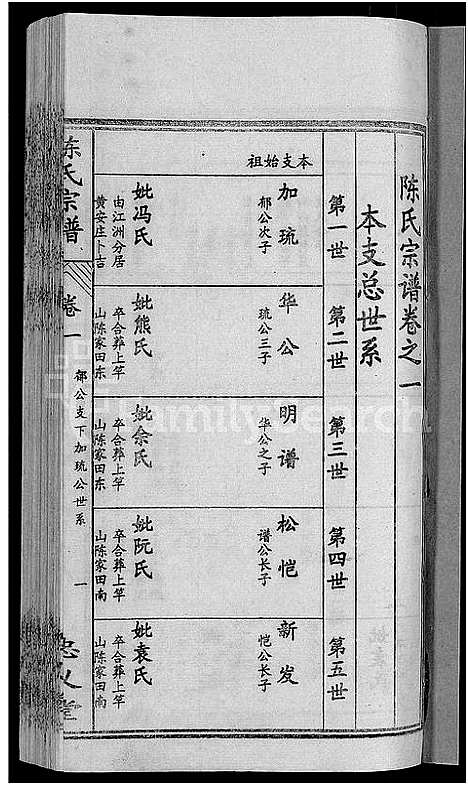 陈氏宗谱卷之一
本支总世系
第一世
第二世
第三世
第四世
第五世
本支始祖
加琉
郁公次子
妣冯氏
由江洲分居
黄安庄卜吉
华公
琉公三子
妣熊氏
卒合葬上竿
山陈家田东
明谱
华公之子
妣余氏
卒合葬上竿
山陈家田东
松恺
谱公长子
妣阮氏
卒合葬上竿
山陈家田南
新发
恺公长子
妣袁氏
卒合葬上竿
山陈家田南
陈氏宗谱
卷一
郁公支下加琉公世系
一
忠义堂
FamilySearch